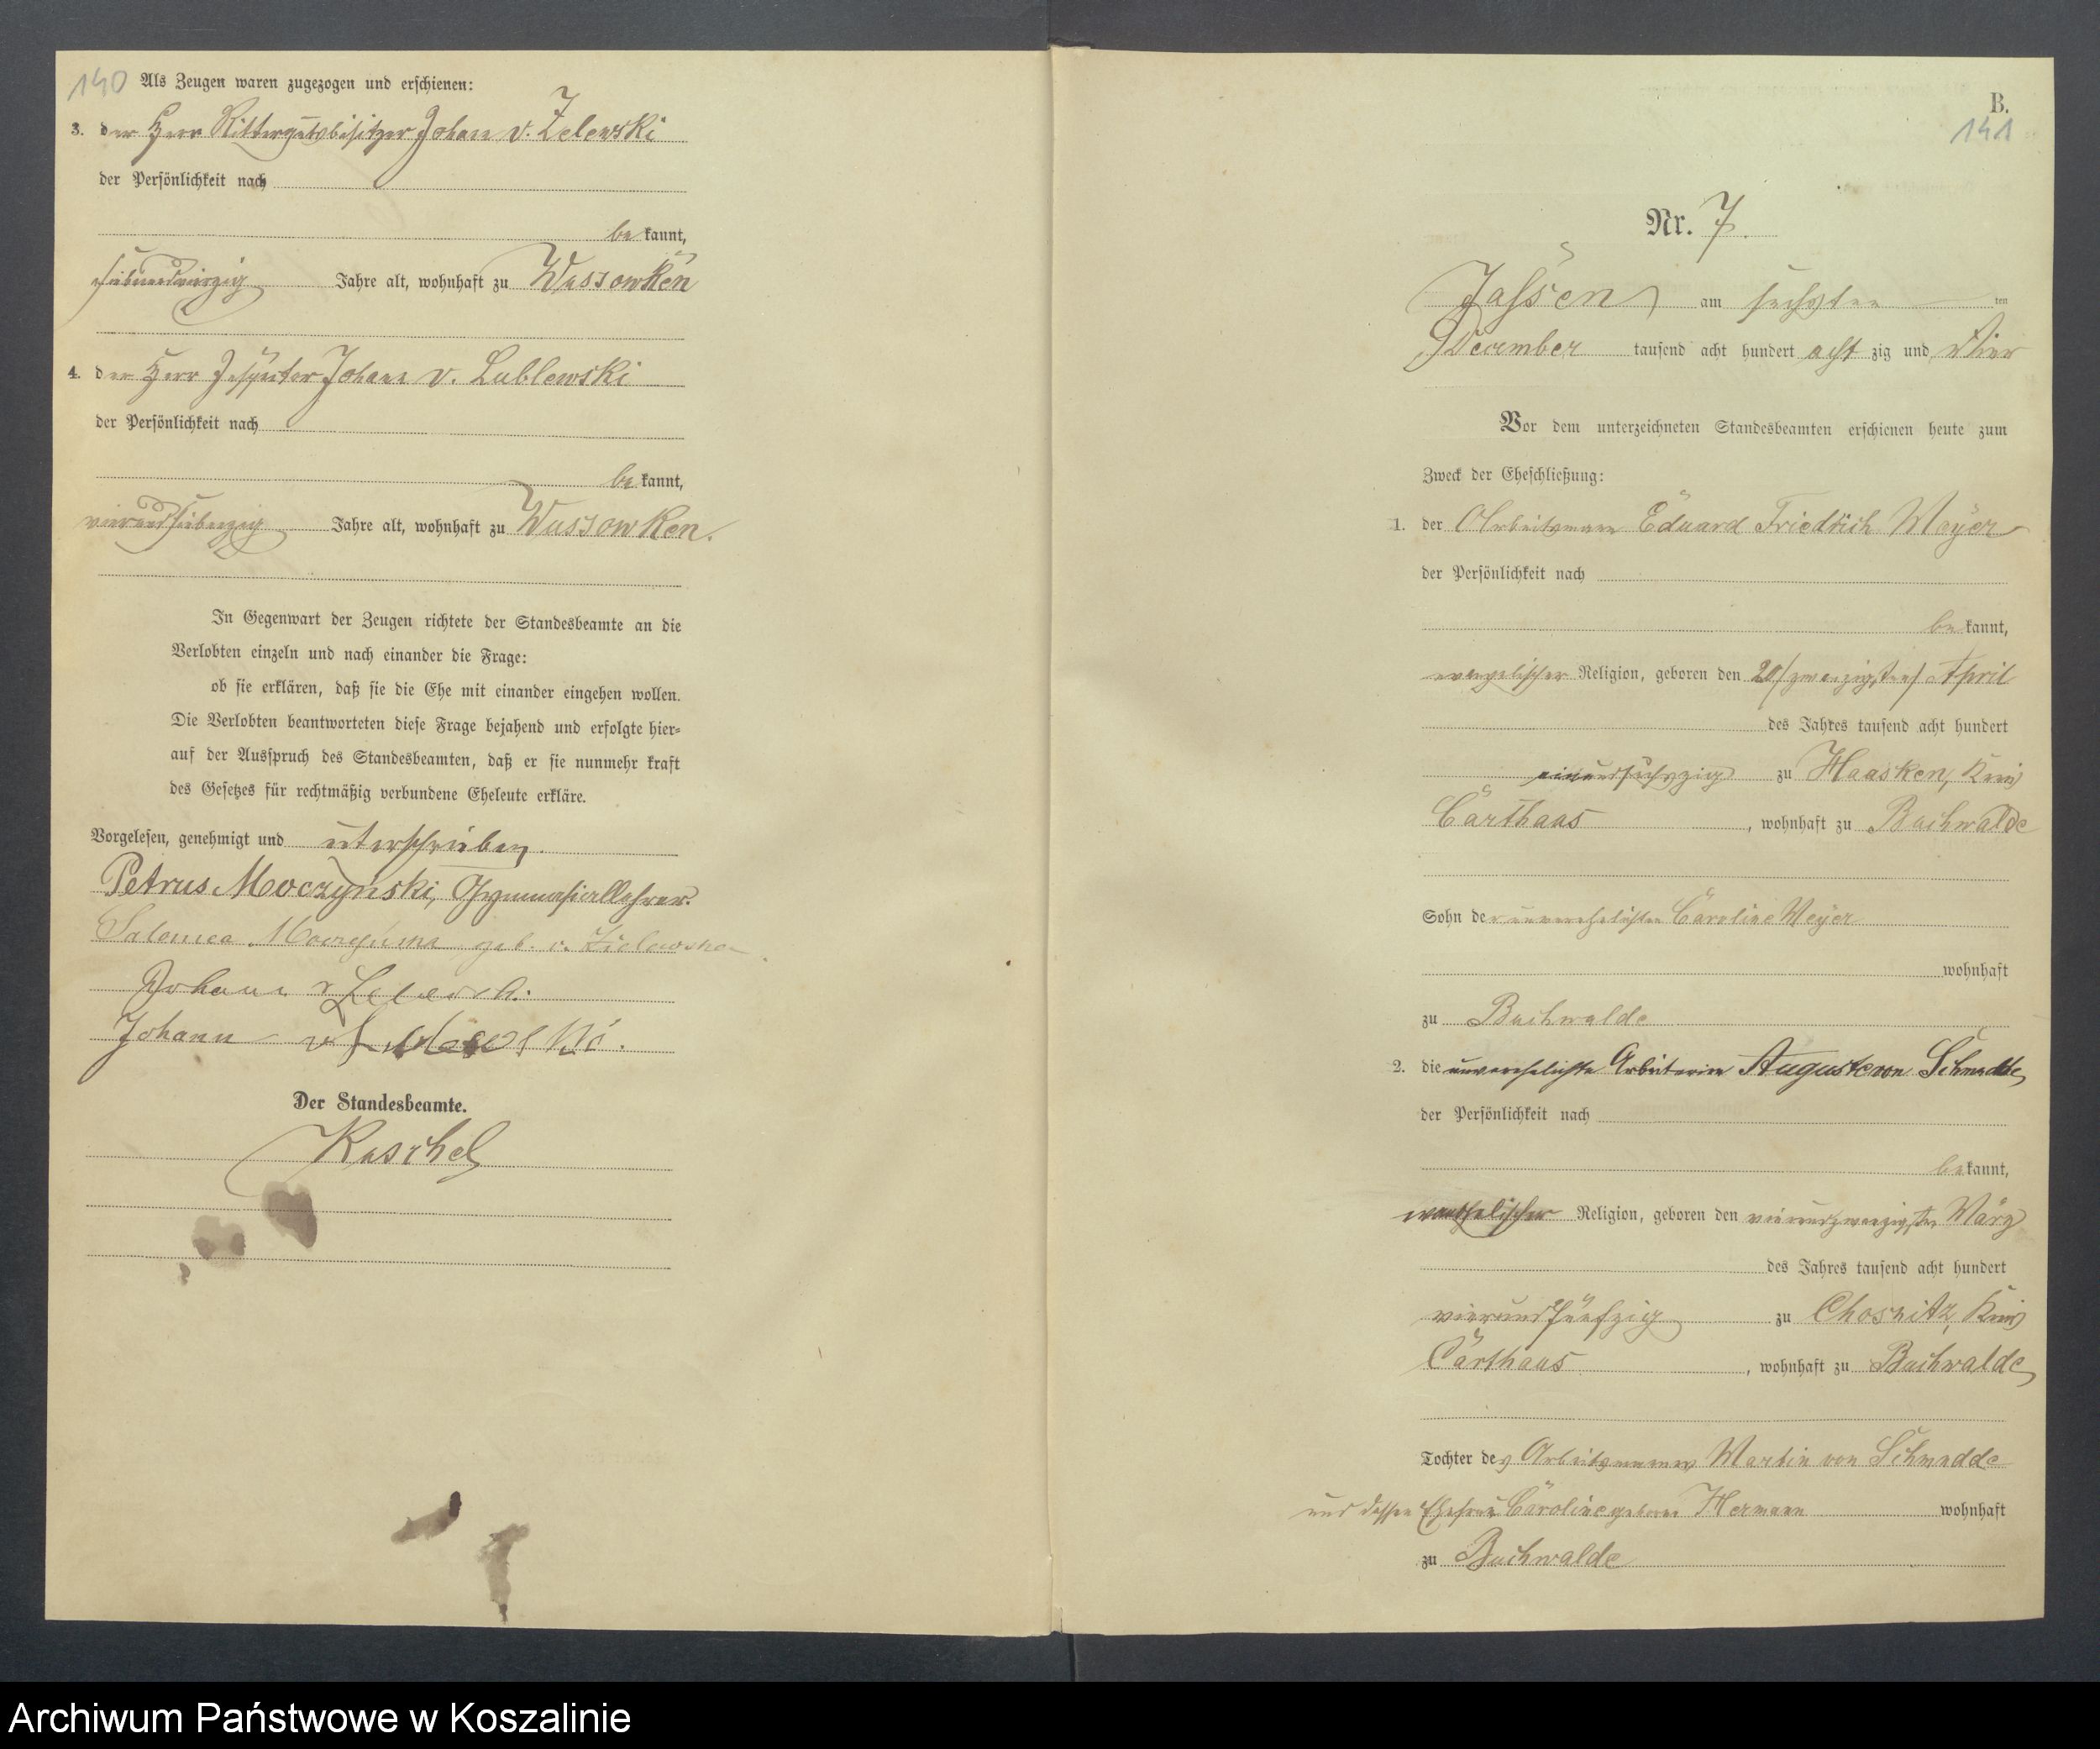 140
Als Zeugen waren zugezogen und erschienen:
3. der Herr Rittergutsbesitzer Johann v. Zelewski
der Persönlichkeit nach
bekannt,
siebenundvierzig Jahre alt, wohnhaft zu Wussowken
4. der Herr Johann v. Lublewski
der Persönlichkeit nach
bekannt,
vierundsiebenzig Jahre alt, wohnhaft zu Wussowken.
In Gegenwart der Zeugen richtete der Standesbeamte an die
Verlobten einzeln und nach einander die Frage:
ob sie erklären, daß sie die Ehe mit einander eingehen wollen.
Die Verlobten beantworteten diese Frage bejahend und erfolgte hier-
auf der Ausspruch des Standesbeamten, daß er sie nunmehr kraft
des Gesetzes für rechtmäßig verbundene Eheleute erkläre.
Vorgelesen, genehmigt und unterschrieben.
Petrus Moczynski, Gymnasiallehrer.
Salomea geb. v.
Johann v
Johann v
Der Standesbeamte.
Raschel
B.
141
Nr. 7.
Jassen, am sechsten ten
December tausend acht hundert achtzig und vier
Vor dem unterzeichneten Standesbeamten erschienen heute zum
Zweck der Eheschließung:
1. der Arbeitsmann Eduard Friedrich Meyer
der Persönlichkeit nach
bekannt,
evangelischer Religion, geboren den 20/zwanzigsten/ April
des Jahres tausend acht hundert
einundsechszig zu Haasken, Kreis
Carthaus, wohnhaft zu Buchwalde
Sohn der unverehelichten Caroline Meyer
wohnhaft
zu Buchwalde
2. die unverehelichte Arbeiterin Auguste von Schmudde
der Persönlichkeit nach
bekannt,
evangelischer Religion, geboren den vierundzwanzigsten März
des Jahres tausend acht hundert
vierundfünfzig zu Chosnitz, Kreis
Carthaus, wohnhaft zu Buchwalde
Tochter des Arbeitsmannes Martin von Schmudde
und dessen Ehefrau Caroline geborene Hermann wohnhaft
zu Buchwalde
Archiwum Państwowe w Koszalinie